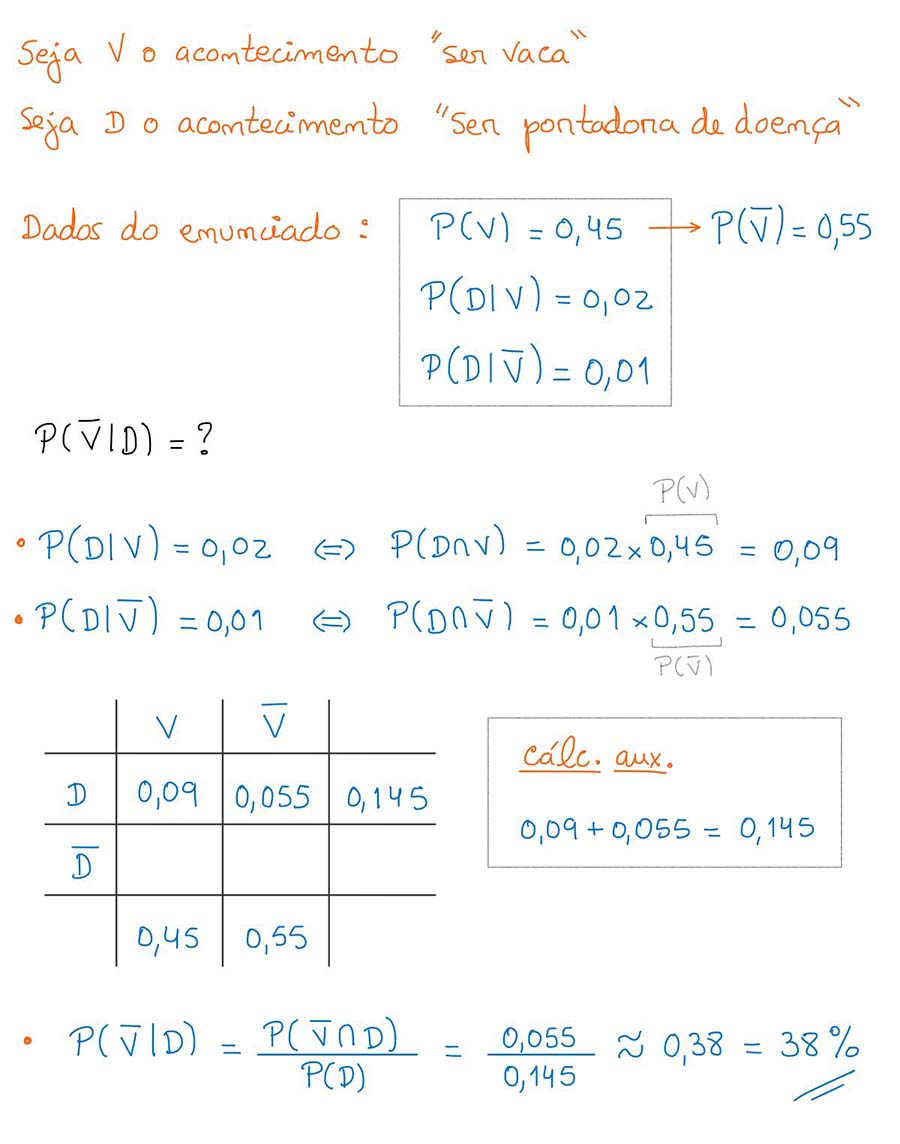 Seja V o acontecimento "ser vaca"
Seja D o acontecimento "Ser portadora de doença"
Dados do enunciado : P(V) = 0,45 → P(V̅) = 0,55
P(D|V) = 0,02
P(D|V̅) = 0,01
P(V̅|D) = ?
P(V)
• P(D|V) = 0,02 ⇔ P(D∩V) = 0,02 × 0,45 = 0,09
• P(D|V̅) = 0,01 ⇔ P(D∩V̅) = 0,01 × 0,55 = 0,055
P(V̅)
V V̅
D 0,09 0,055 0,145
D̅
0,45 0,55
cálc. aux.
0,09 + 0,055 = 0,145
• P(V̅|D) = P(V̅∩D) / P(D) = 0,055 / 0,145 ≈ 0,38 = 38%